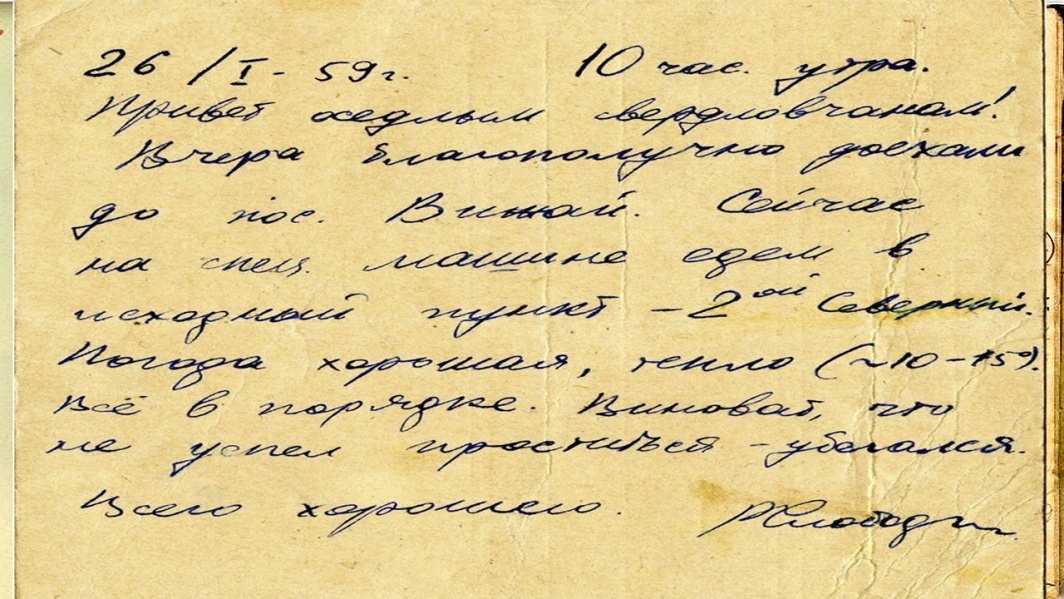 26/I - 59 г. 10 час. утра.
Привет оседлым свердловчанам!
Вчера благополучно доехали
до пос. Вижай. Сейчас
на спец. машине едем в
исходный пункт – 2ой Северный.
Погода хорошая, тепло (~10-15°).
Всё в порядке. Виноват, что
не успел проститься – убегался.
Всего хорошего. РСлободин